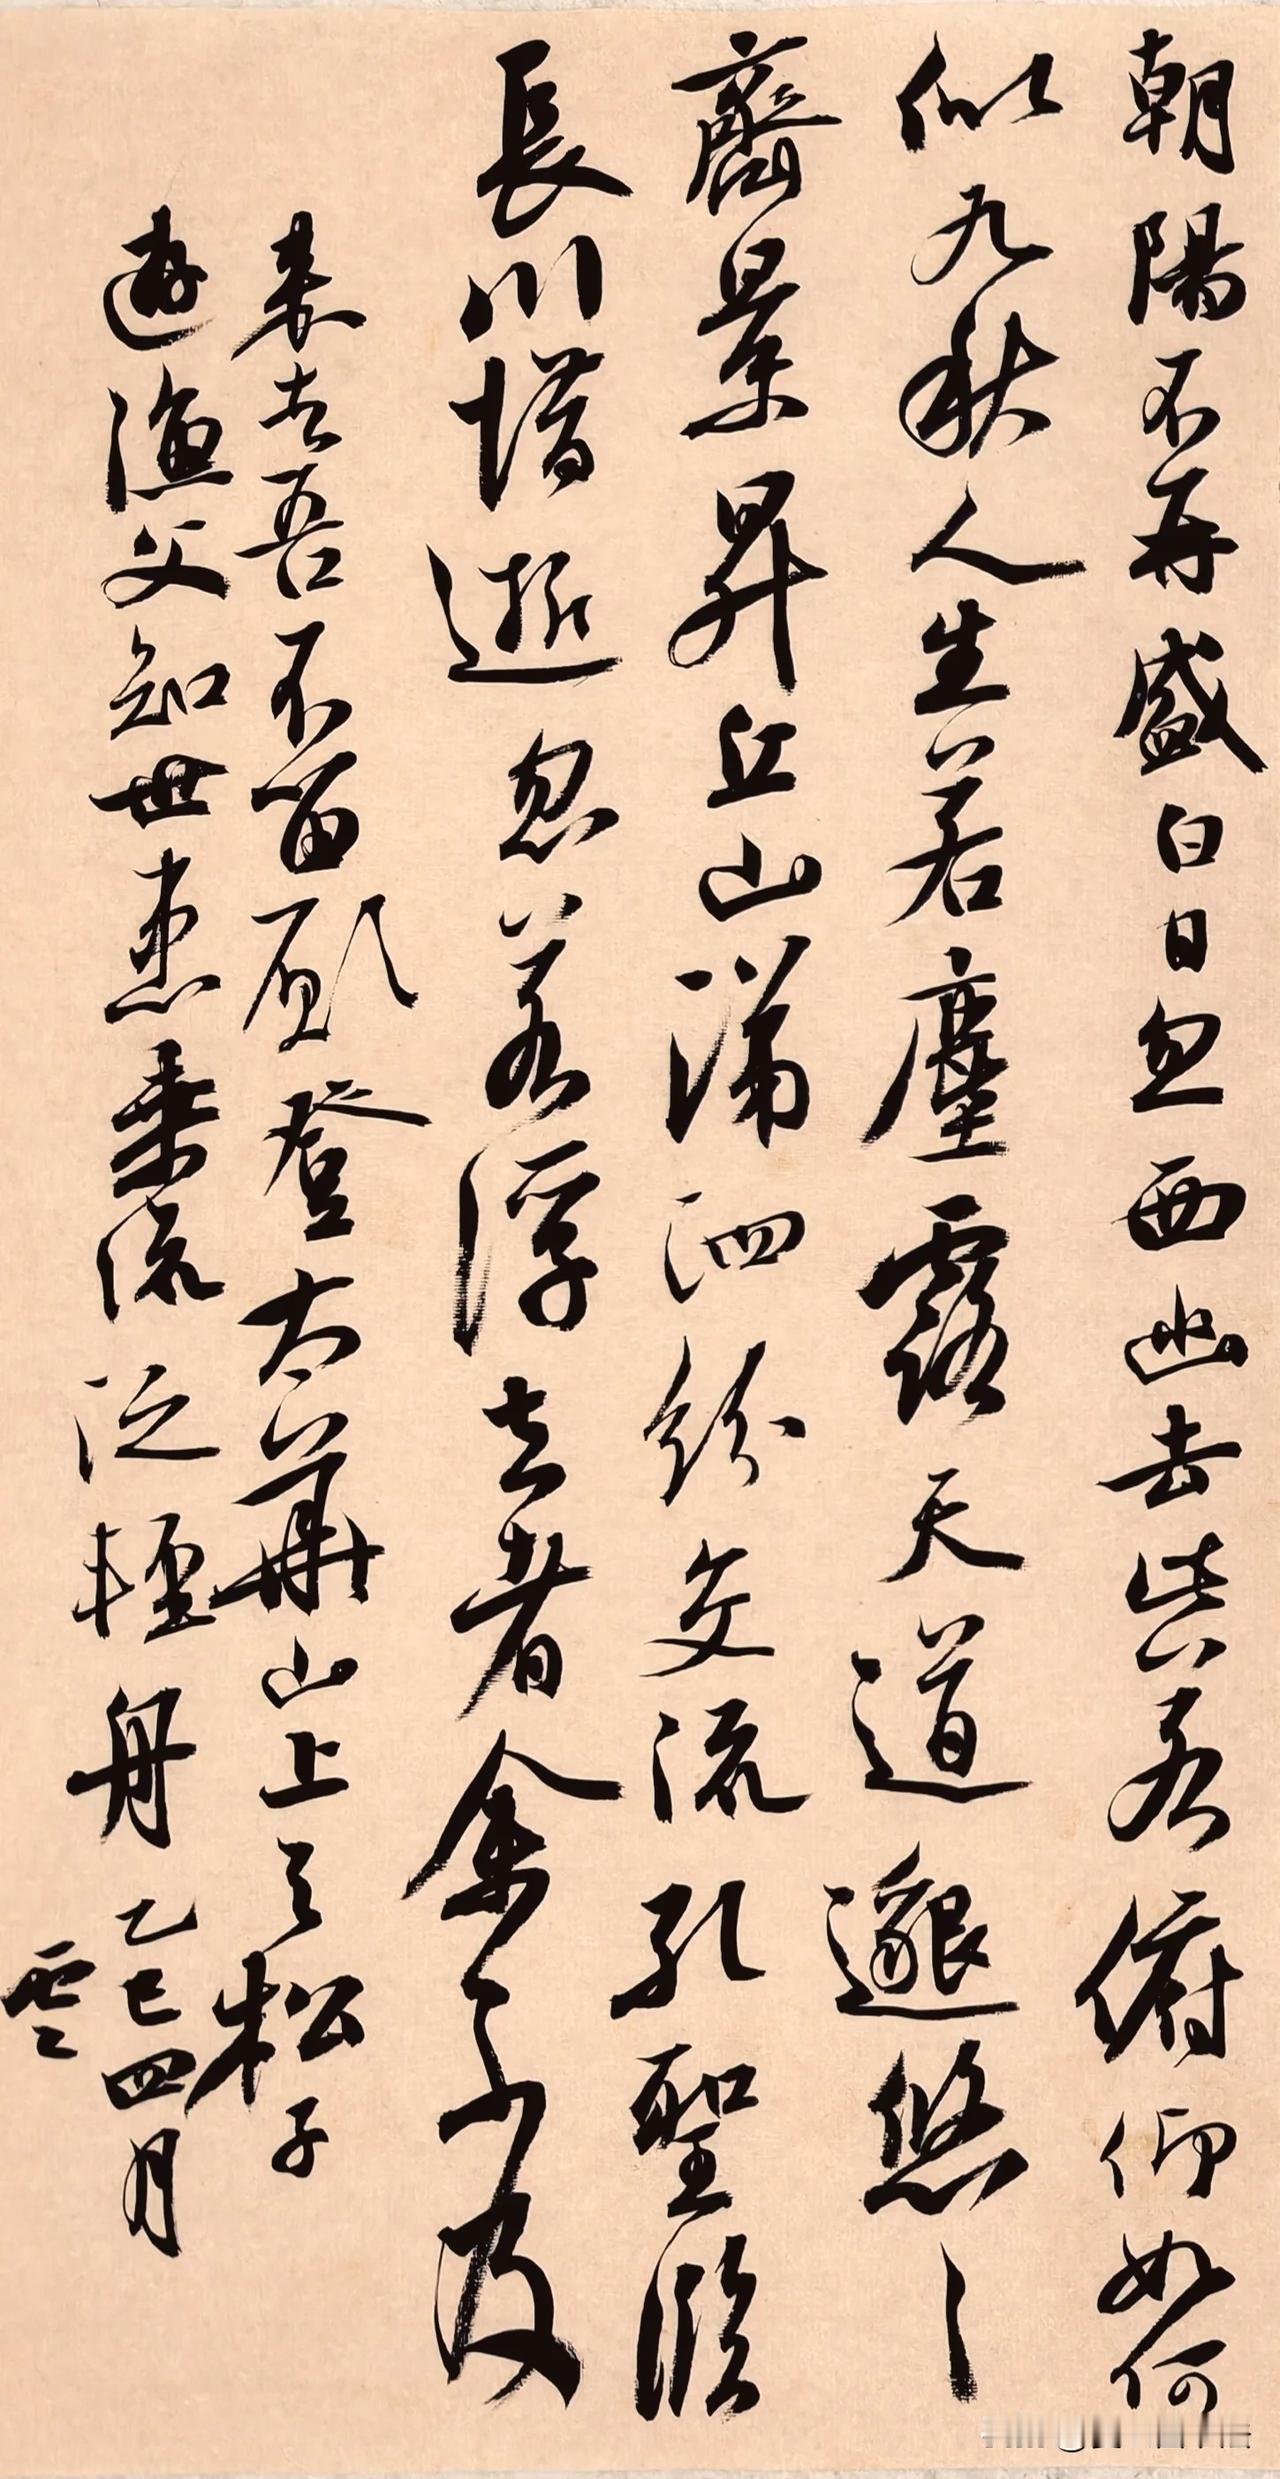 朝陽不再盛白日忽西幽去此若俯仰如何
似九秋人生若塵露天道邈悠〻
齊景昇丘山涕泗紛交流孔聖臨
長川惜逝忽若浮去者余不及
来者吾不留願登太華山上与松子
遊漁父知世患乘流泛輕舟乙巳四月
雲